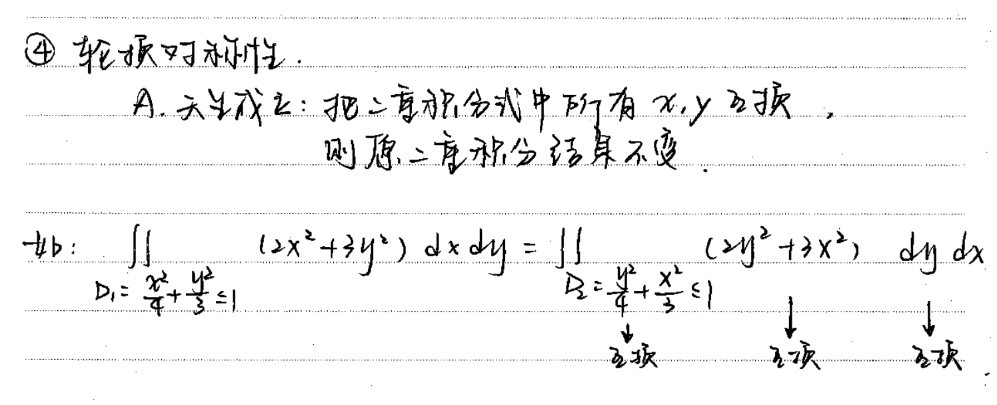 ④ 轮换对称性.
A. 天生成立: 把二重积分式中所有 x, y 互换,
则原二重积分结果不变.
如: ∬_{D₁=x²/4+y²/3≤1} (2x²+3y²) dx dy = ∬_{D₂=y²/4+x²/3≤1} (2y²+3x²) dy dx
↓ ↓ ↓
互换 互换 互换